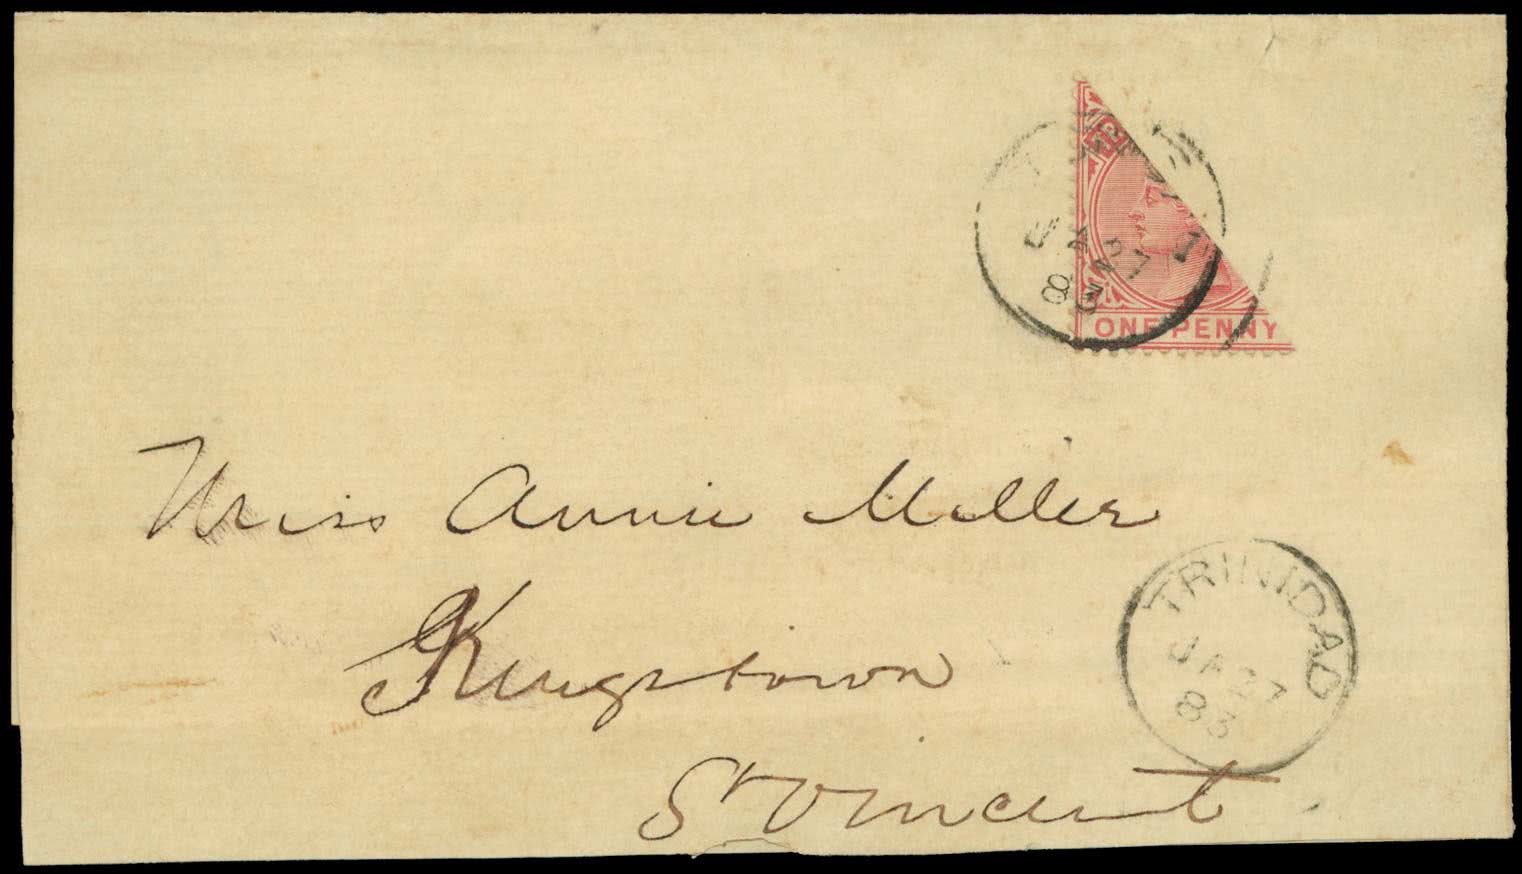 JA 27
83
ONE PENNY
Miss Annie Miller
Kingstown
St Vincent
TRINIDAD
JA 27
83